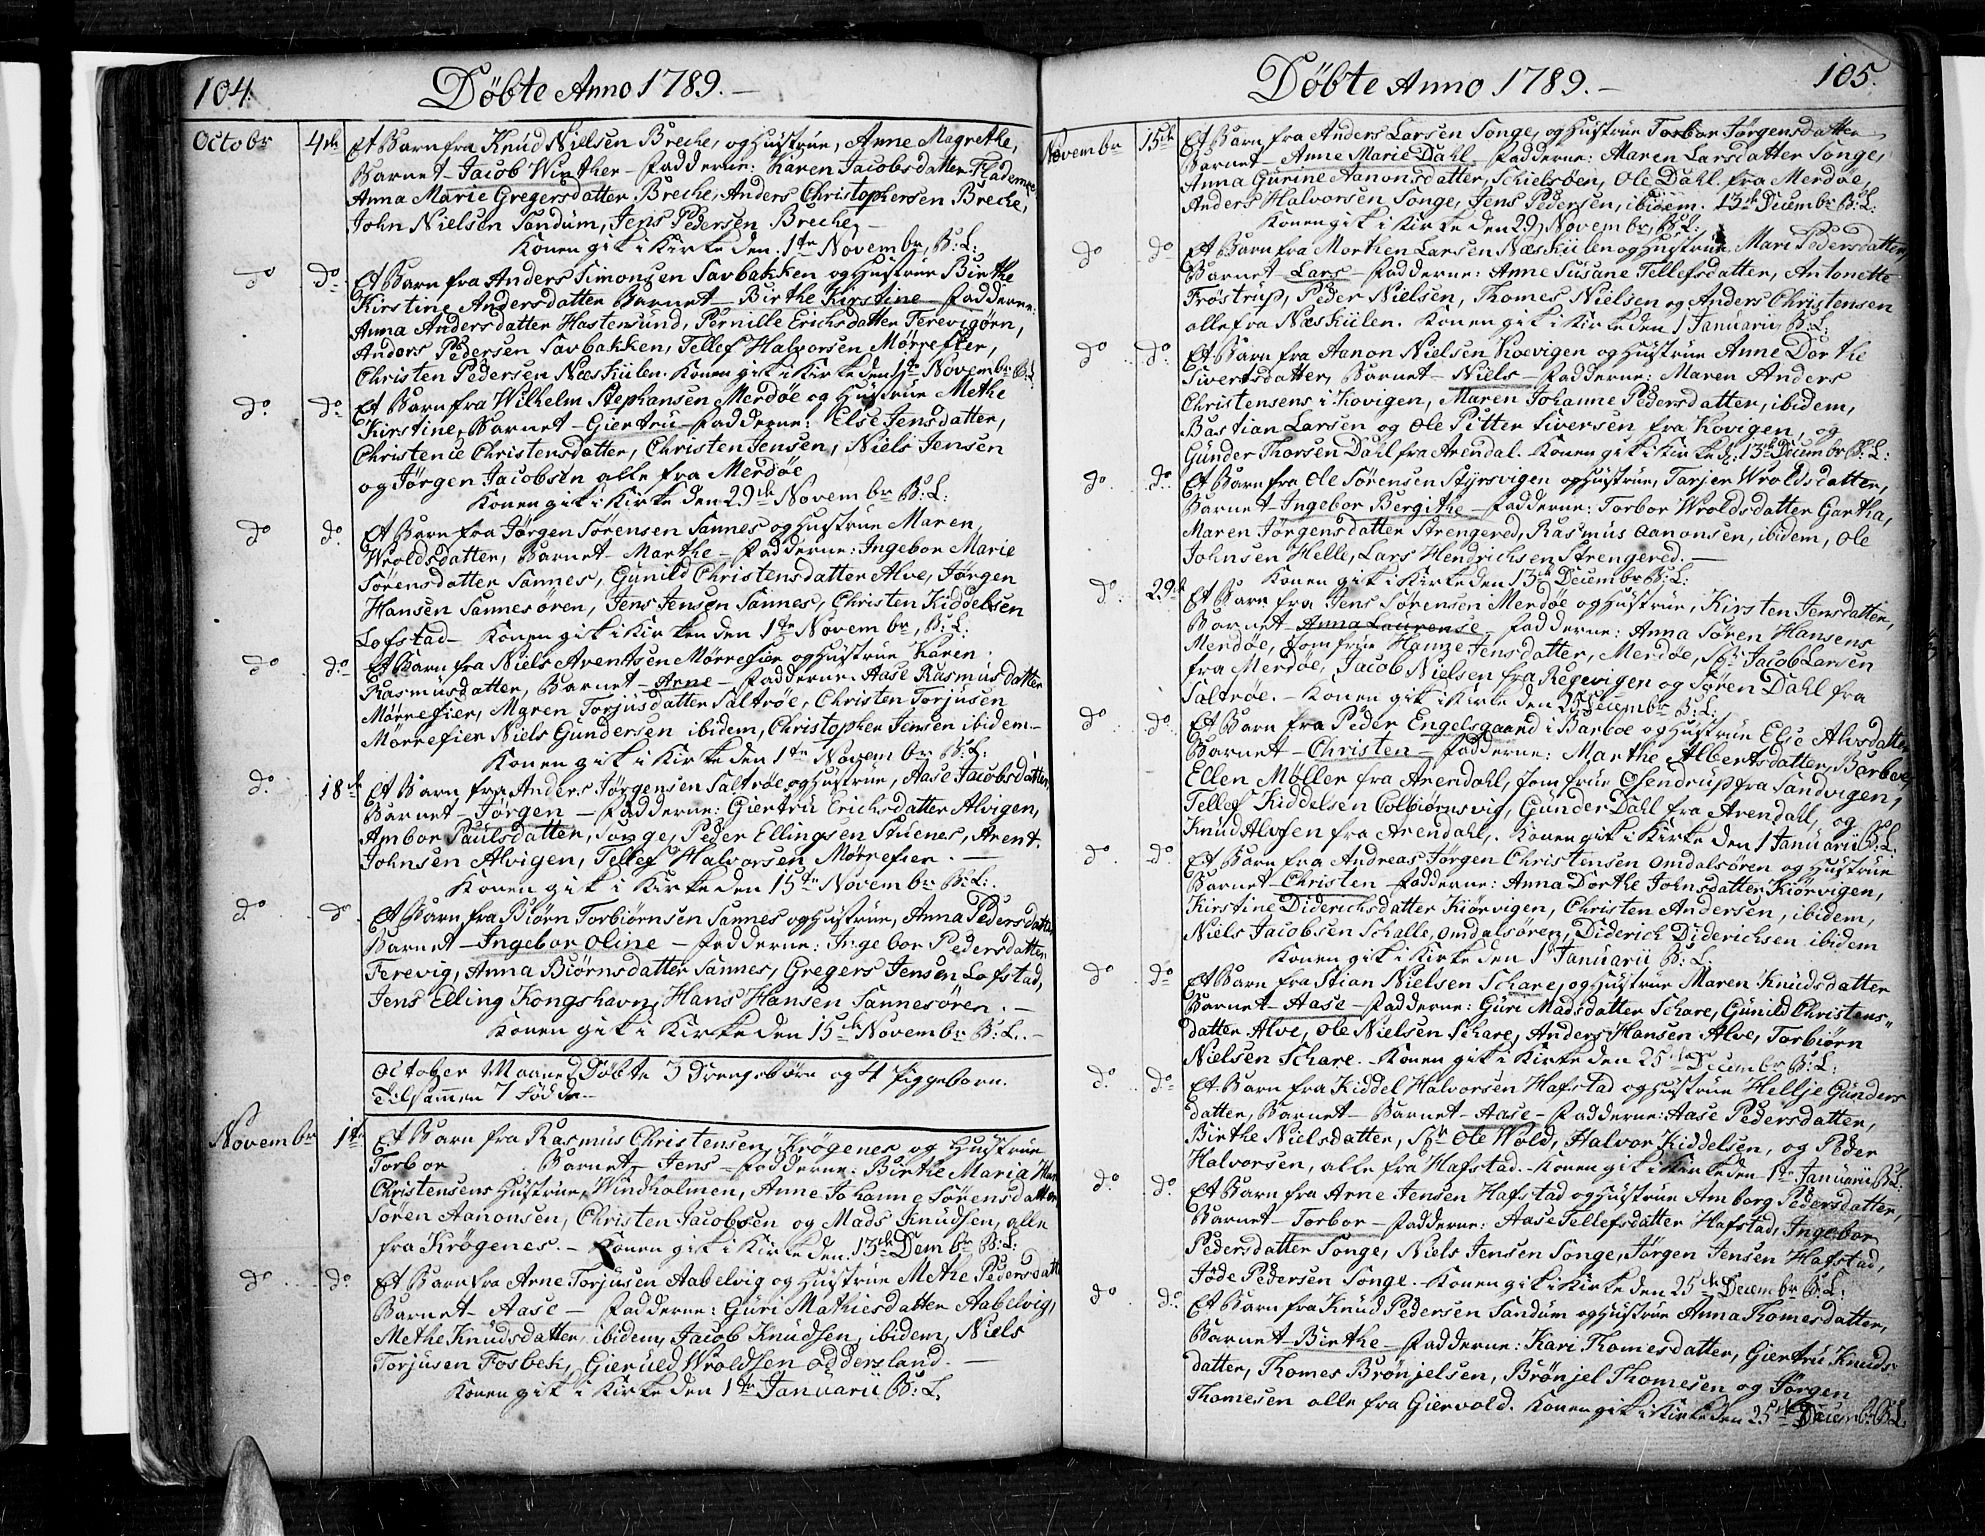 104.
Döbte Anno 1789.
Octobr 4de Et Barn fra Knud Nielsen Breche, og Hustrue, Anne Magrethe,
Barnet - Jacob Winther - Fadderne: Karen Jacobsdatter Fladernes
Anna Marie Gregersdatter Breche, Anders Christophersen Breche,
John Nielsen Sandum, Jens Pedersen Breche, -
Konen gik i Kirke den 1te Novembr, B: L:
do do Et Barn fra Anders Simonsen Savbakken og Hustrue Birthe
Kirstine Andersdatter Barnet - Birthe Kirstine - Fadderne:
Anna Andersdatter Hastensund, Pernille Erichsdatter Ferevigörn,
Anders Pedersen Savbakken, Tellef Halvorsen Mörrefier,
Christen Pedersen Næskiilen. Konen gik i Kirke den 1te Novembr B: L.
do do Et Barn fra Wilhelm Stephansen Merdöe og Hustrue Methe
Kirstine, Barnet - Giertru - Fadderne: Else Jensdatter,
Christence Christensdatter, Christen Jensen, Niels Jensen
og Jörgen Jacobsen alle fra Merdöe
Konen gik i Kirke den 29de Novembr B: L:
do do Et Barn fra Jörgen Sörensen Sannes og Hustrue Maren
Wroldsdatter, Barnet - Marthe - Fadderne: Ingebor Marie
Sörensdatter Sannes, Gunild Christensdatter Alve, Jörgen
Hansen Sannesören, Jens Jensen Sannes, Christen Kiddelsen
Lofstad - Konen gik i Kirken den 1te Novembr, B: L:
do do Et Barn fra Niels Arentsen Mörrefier og Hustrue Karen
Rasmusdatter, Barnet - Arne - Fadderne: Aase Rasmusdatter
Mörrefier, Maren Torjusdatter Saltröe, Christen Torjusen
Mörrefier Niels Gundersen ibidem, Christopher Jensen ibidem. -
Konen gik i Kirke den 1te Novembr B: L:
do. 18de Et Barn fra Anders Jörgensen Saltröe og Hustrue, Aase Jacobsdatter
Barnet - Jörgen - Fadderne: Giertru Erichsdatter Alvigen,
Ambor Paulsdatter, Songe, Peder Ellingsen Stuenes, Arent
Johnsen Alvigen, Tellef Halvorsen Mörrefier. -
Konen gik i Kirke den 15de Novembr B: L:.
do do Et Barn fra Biörn Torbiörnsen Sannes og Hustrue, Anna Pedersdatter
Barnet - Ingebor Oline - Fadderne: Ingebor Pedersdatter
Ferevig, Anna Biörnsdatter Sannes, Gregers Jensen Lofstad,
Jens Elling Kongshavn, Hans Hansen Sannesören. -
Konen gik i Kirke den 15de Novembr B: L. -
October Maaned Döbte 3 Drengebörn og 4 Piggebörn.
Tilsammen 7 Födde -
Novembr 1te Et Barn fra Rasmus Christensen, Krögenes og Hustrue
Torbor Barnet, Jens - Fadderne: Birthe Maria Hans
Christensens Hustrue, Windholmen, Anne Johanne Sörensdatter
Sören Aanonsen, Christen Jacobsen og Mads Knudsen, alle
fra Krögenes. - Konen gik i Kirke den 13de Dembr B: L:
do do. Et Barn fra Arne Torjusen Aabelvig og Hustrue Methe Pedersdatt
Barnet - Aase - Fadderne: Guri Mathiesdatter Aabelvig,
Methe Knudsdatter, ibidem, Jacob Knudsen, ibidem, Niels
Torjusen Fosbek, Gieruld Wroldsen Oddersland. -
Konen gik i Kirke den 1te Januarii B: L.
105.
Döbte Anno 1789. -
Novembr 15de Et Barn fra Anders Larsen Songe, og Hustrue Torbor Jörgensdatter
Barnet - Anne Marie Dahl - Fadderne: Maren Larsdatter Songe,
Anna Gurine Aanonsdatter, Schielsöen, Ole Dahl fra Merdöe,
Anders Halvorsen Songe, Jens Pedersen, ibidem. 13de Decembr B: L:
Konen gik i Kirke den 29 Novembr, B: L:
do do Et Barn fra Morthen Larsen Næskiilen og Hustrue Mari Pedersdatter,
Barnet - Lars - Fadderne: Anne Susane Tellefsdatter, Antonette
Tröstrup, Peder Nielsen, Thomes Nielsen og Anders Christensen
alle fra Næskiilen. Konen gik i Kirke den 1 Januarii B: L:
do do Et Barn fra Aanon Nielsen Koevigen og Hustrue Anne Dorthe
Sivertsdatter, Barnet - Niels - Fadderne: Maren Anders
Christensens i Kovigen, Maren Johanne Pedersdatter, ibidem,
Bastian Larsen og Ole Pitter Siversen fra Kovigen, og
Gunder Thorsen Dahl fra Arendal. Konen gik i Kirke d: 13de Decembr B: L:
do do. Et Barn fra Ole Sörensen Styrsvigen og Hustrue, Tarjer Wroldsdatter,
Barnet - Ingebor Bergithe - Fadderne: Torbor Wroldsdatter Gartha,
Maren Jörgensdatter Strengered, Rasmus Aanonsen, ibidem, Ole
Johnsen Helle, Lars Hendrichsen Strengered. -
Konen gik i Kirke den 13de Decembr B: L:
do. 29d Et Barn fra Jens Sörensen Merdöe og Hustrue, Kirsten Jensdatter,
Barnet - Anna Laurense - Fadderne: Anna Sören Hansens
Merdöe, Jomfrue Hanze Jensdatter, Merdöe, Sr Jacob Larsen
fra Merdöe, Jacob Nielsen fra Regevigen og Sören Dahl fra
Saltröe. - Konen gik i Kirke den 25 Decembr B: L:
do do Et Barn fra Peder Engelsgaard i Barboe og Hustrue Else Alvsdatter
Barnet - Christen - Fadderne: Marthe Albertsdatter, Barboe,
Ellen Möller fra Arendahl, Jomfrue Osendrup fra Sandvigen,
Tellef Kiddelsen Colbiörnsvig, Gunder Dahl fra Arendal, og
Knud Alvsen fra Arendahl,. Konen gik i Kirke den 1 Januarii B: L.
do do Et Barn fra Andreas Jörgen Christensen Omdalsören og Hustrue
Barnet - Christen - Fadderne: Anna Dorthe Johnsdatter Kiörvigen,
Kirstine Diderichsdatter Kiörvigen, Christen Andersen, ibidem,
Niels Jacobsen Schalle, Omdalsören, Diderich Diderichsen ibidem
Konen gik i Kirke den 1 Januarii B: L.
do do Et Barn fra Stian Nielsen Schare, og Hustrue Maren Knudsdatter
Barnet - Aase - Fadderne: Guri Madsdatter Schare, Gunild Christens-
datter Alve, Ole Nielsen Schare, Anders Hansen Alve, Torbiörn
Nielsen Schare. - Konen gik i Kirke den 25de Decembr B: L:
do. do Et Barn fra Kiddel Halvorsen Hafstad og Hustrue Hellje Gunders
datter, Barnet - Barnet - Aase - Fadderne: Aase Pedersdatter,
Birthe Nielsdatter, Sr Ole Wold, Halvor Kiddelsen, og Peder
Halvorsen, alle fra Hafstad. - Konen gik i Kirke den 1te Januarii B: L:
do. do. Et Barn fra Arne Jensen Hafstad og Hustrue Amborg Pedersdatter,
Barnet - Torbor - Fadderne: Aase Tellefsdatter Hafstad, Ingebor
Pedersdatter Songe, Niels Jensen Songe, Jörgen Jensen Hafstad,
Jöde Pedersen Songe. - Konen gik i Kirke den 25de Decembr B: L:
do do. Et Barn fra Knud Pedersen Sandum og Hustrue Anna Thomesdatter,
Barnet - Birthe - Fadderne: Kari Thomesdatter, Giertru Knuds-
datter, Thomes Brönjelsen, Brönjel Thomesen og Jörgen
Thomesen alle fra Giervold. Konen gik i Kirke den 25de Decembr B: L.